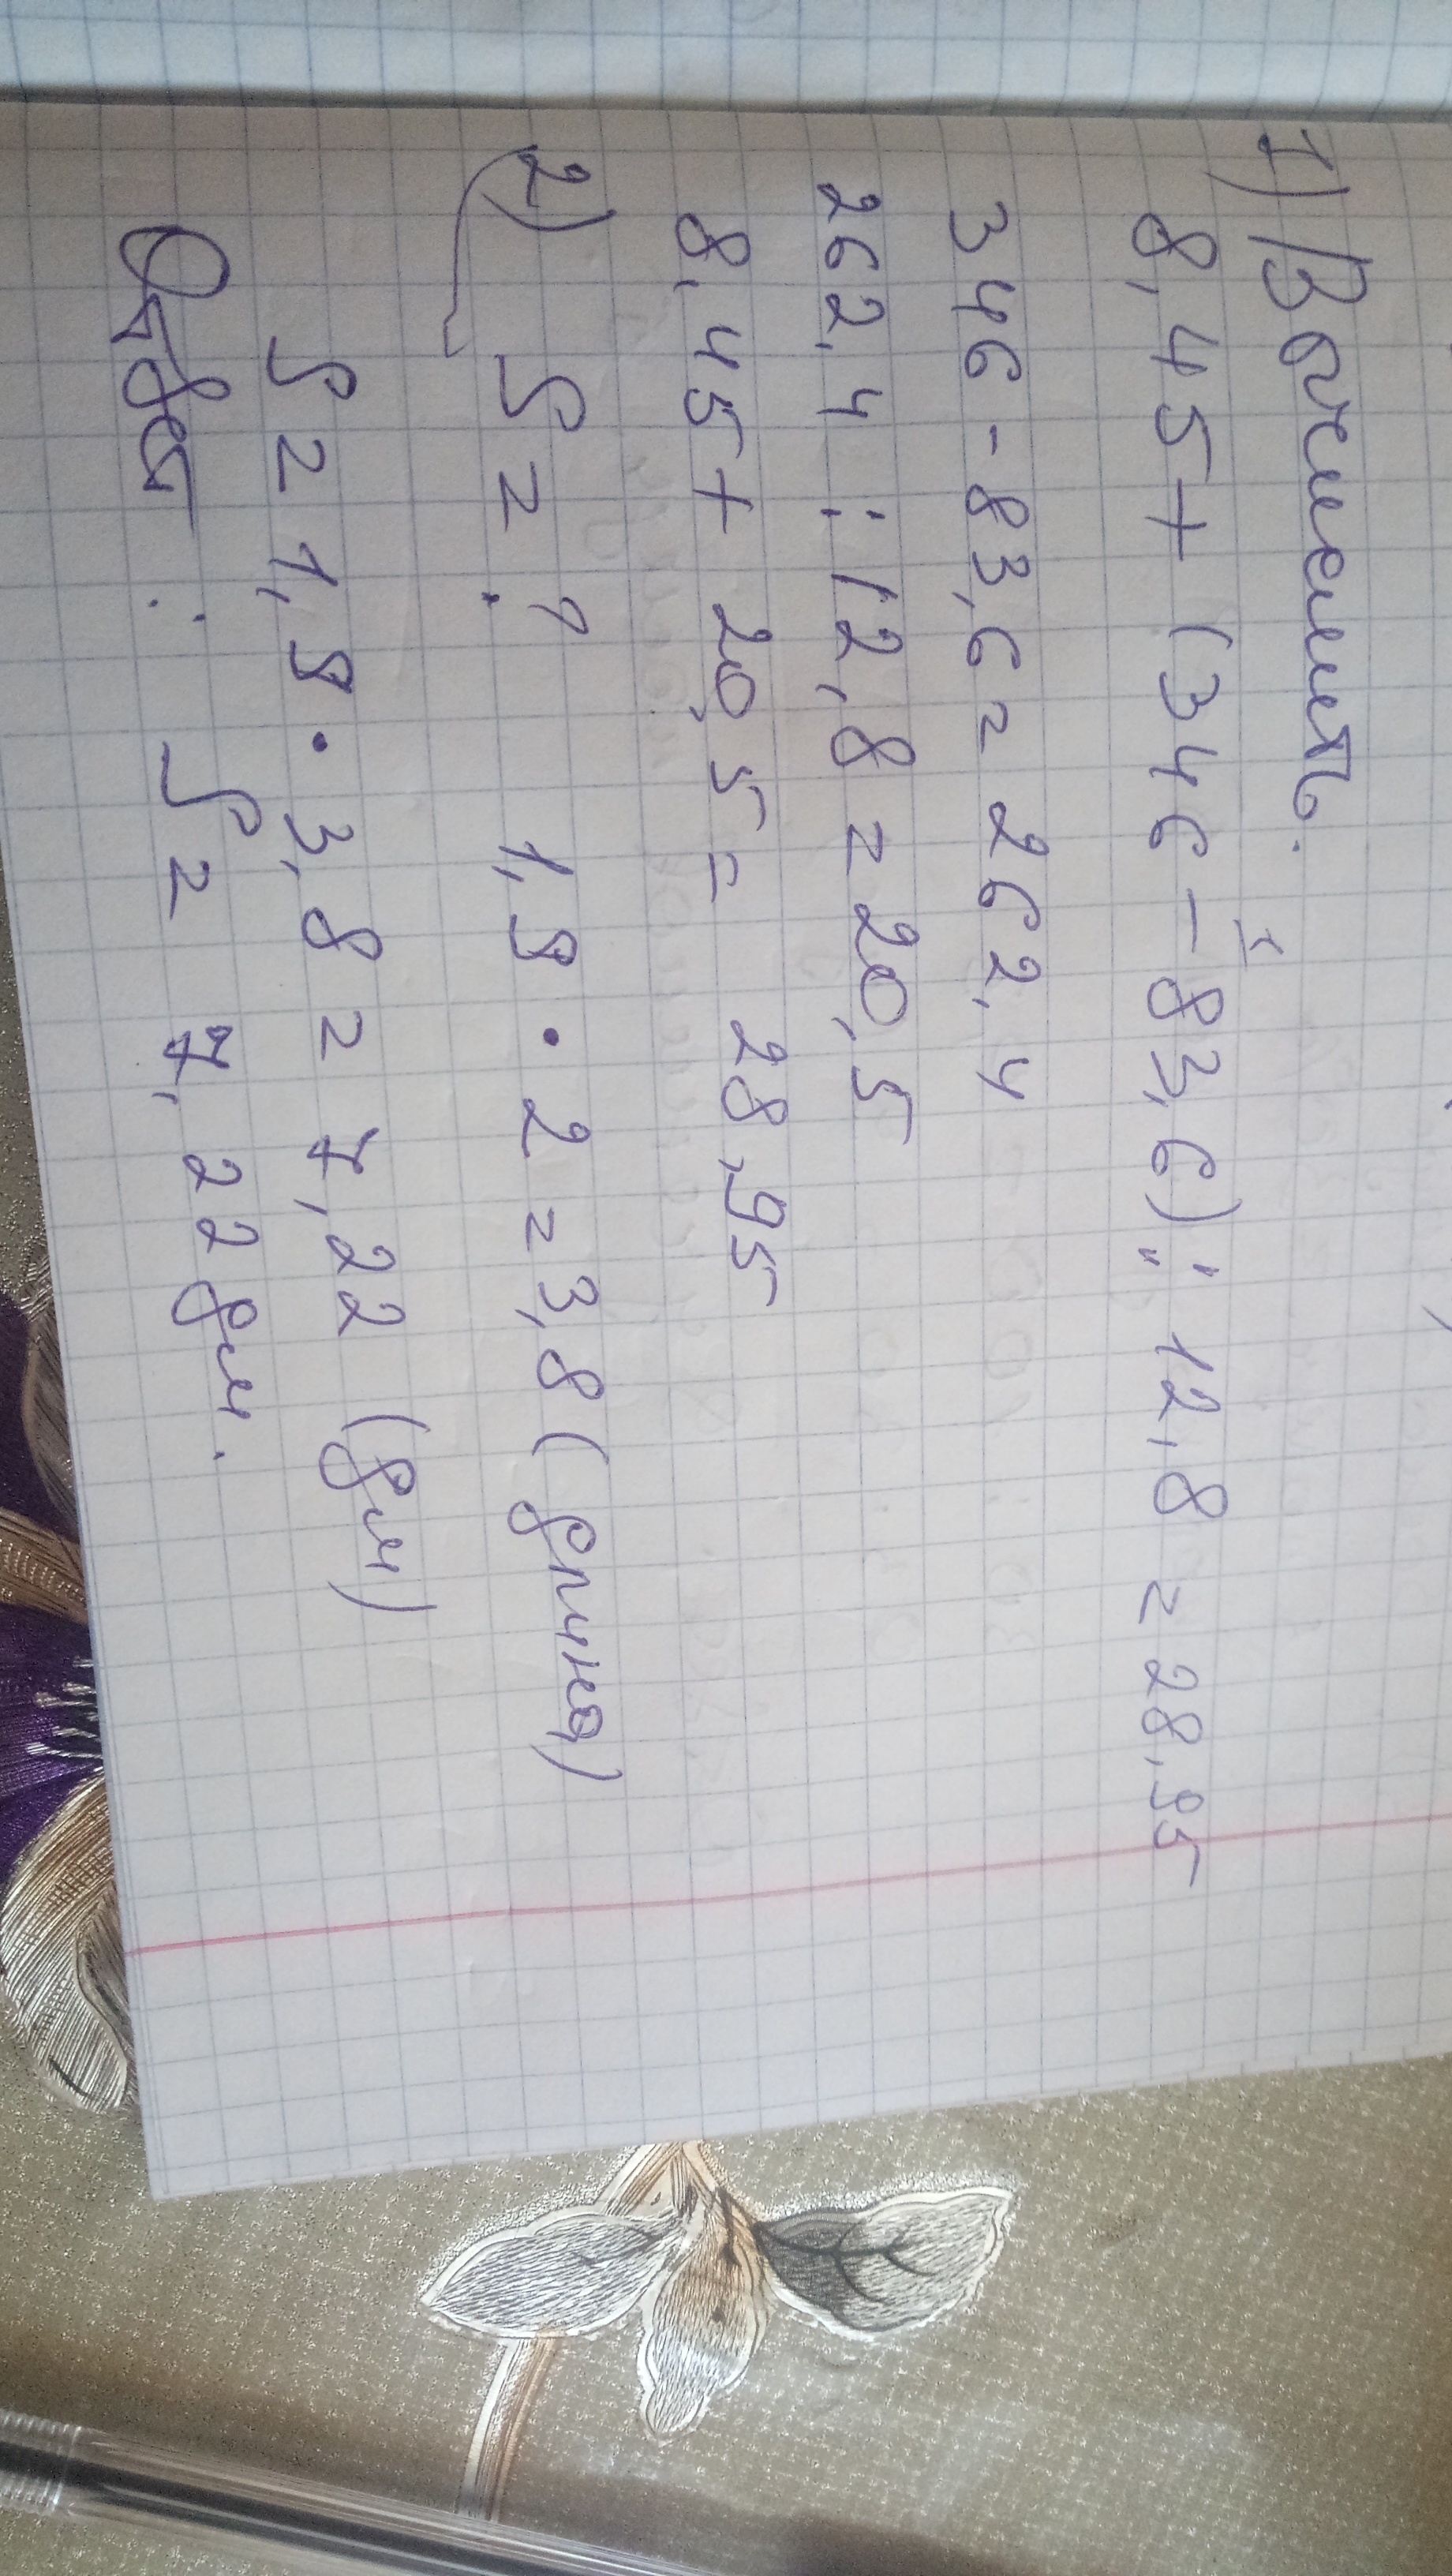 1) Вычислить.
8,45 + (346 - 83,6) : 12,8 = 28,95
346 - 83,6 = 262,4
262,4 : 12,8 = 20,5
8,45 + 20,5 = 28,95
2) S = ? 1,9 · 2 = 3,8 (длина)
S = 1,9 · 3,8 = 7,22 (дм)
Ответ : S = 7,22 дм.